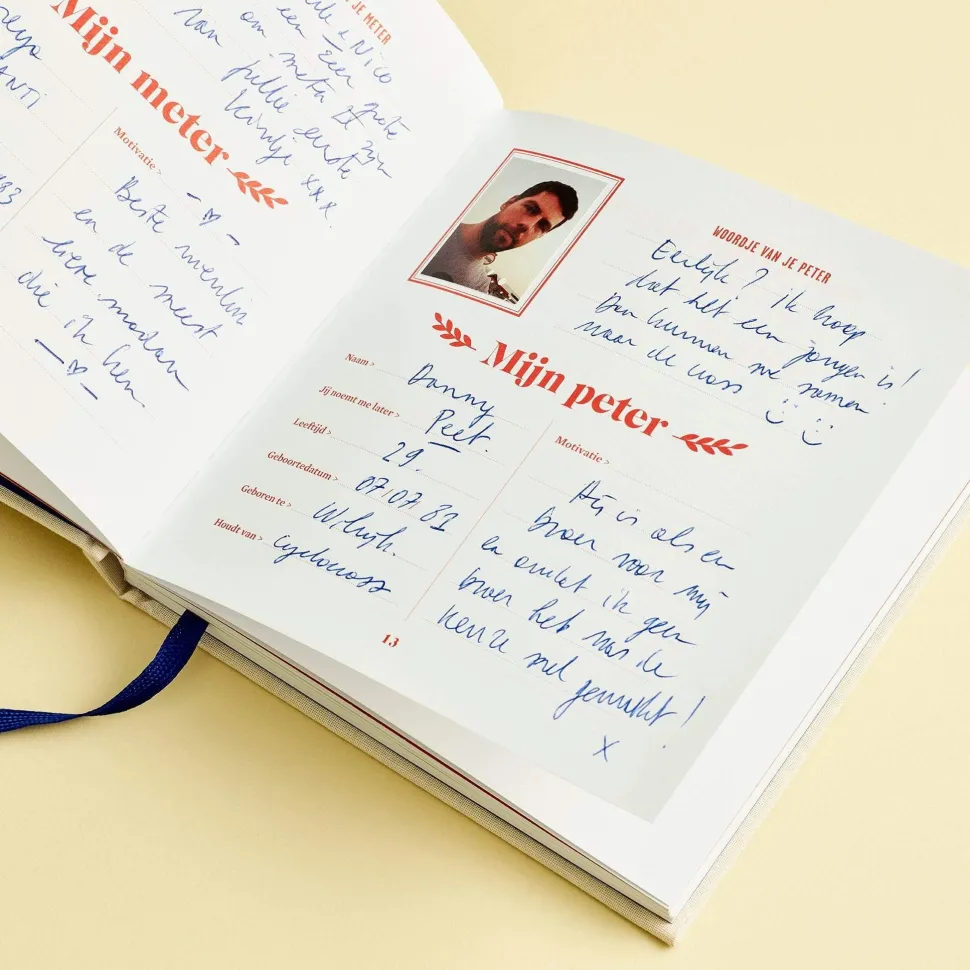 JE METER
& Nico
een Eer
om meter te zijn
van jullie eerste
kindje xxx
Mijn meter
Motivatie >
Beste vriendin
en de meest
lieve madam
die ik ken.
WOORDJE VAN JE PETER
Eerlijk? ik hoop
dat het een jongen is!
Dan kunnen we samen
naar de cross
Mijn peter
Naam > Danny
Jij noemt me later > Peet.
Leeftijd > 29.
Geboortedatum > 07/07/82
Geboren te > Wilrijk.
Houdt van > cyclocross
Motivatie >
Hij is als een
broer voor mij
en omdat ik geen
broer heb was de
keuze snel gemaakt!
x
13